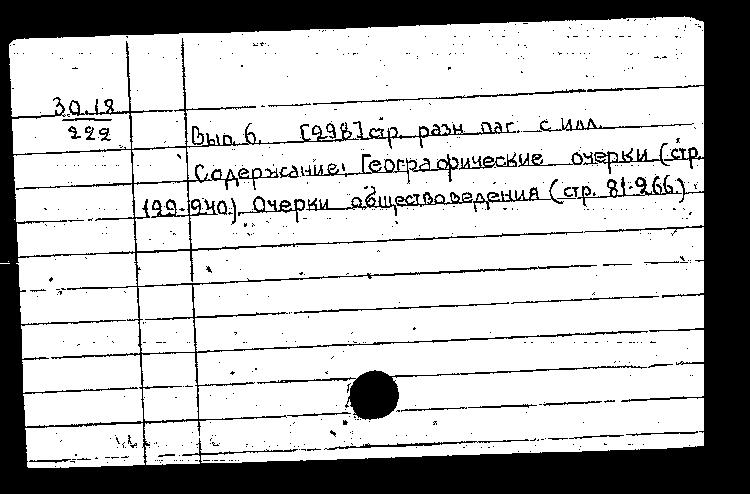 30.18
222
Вып. 6. [298] стр. разн паг. с илл.
Содержание: Географические очерки (стр.
199-240). Очерки обществоведения (стр. 81-266.)